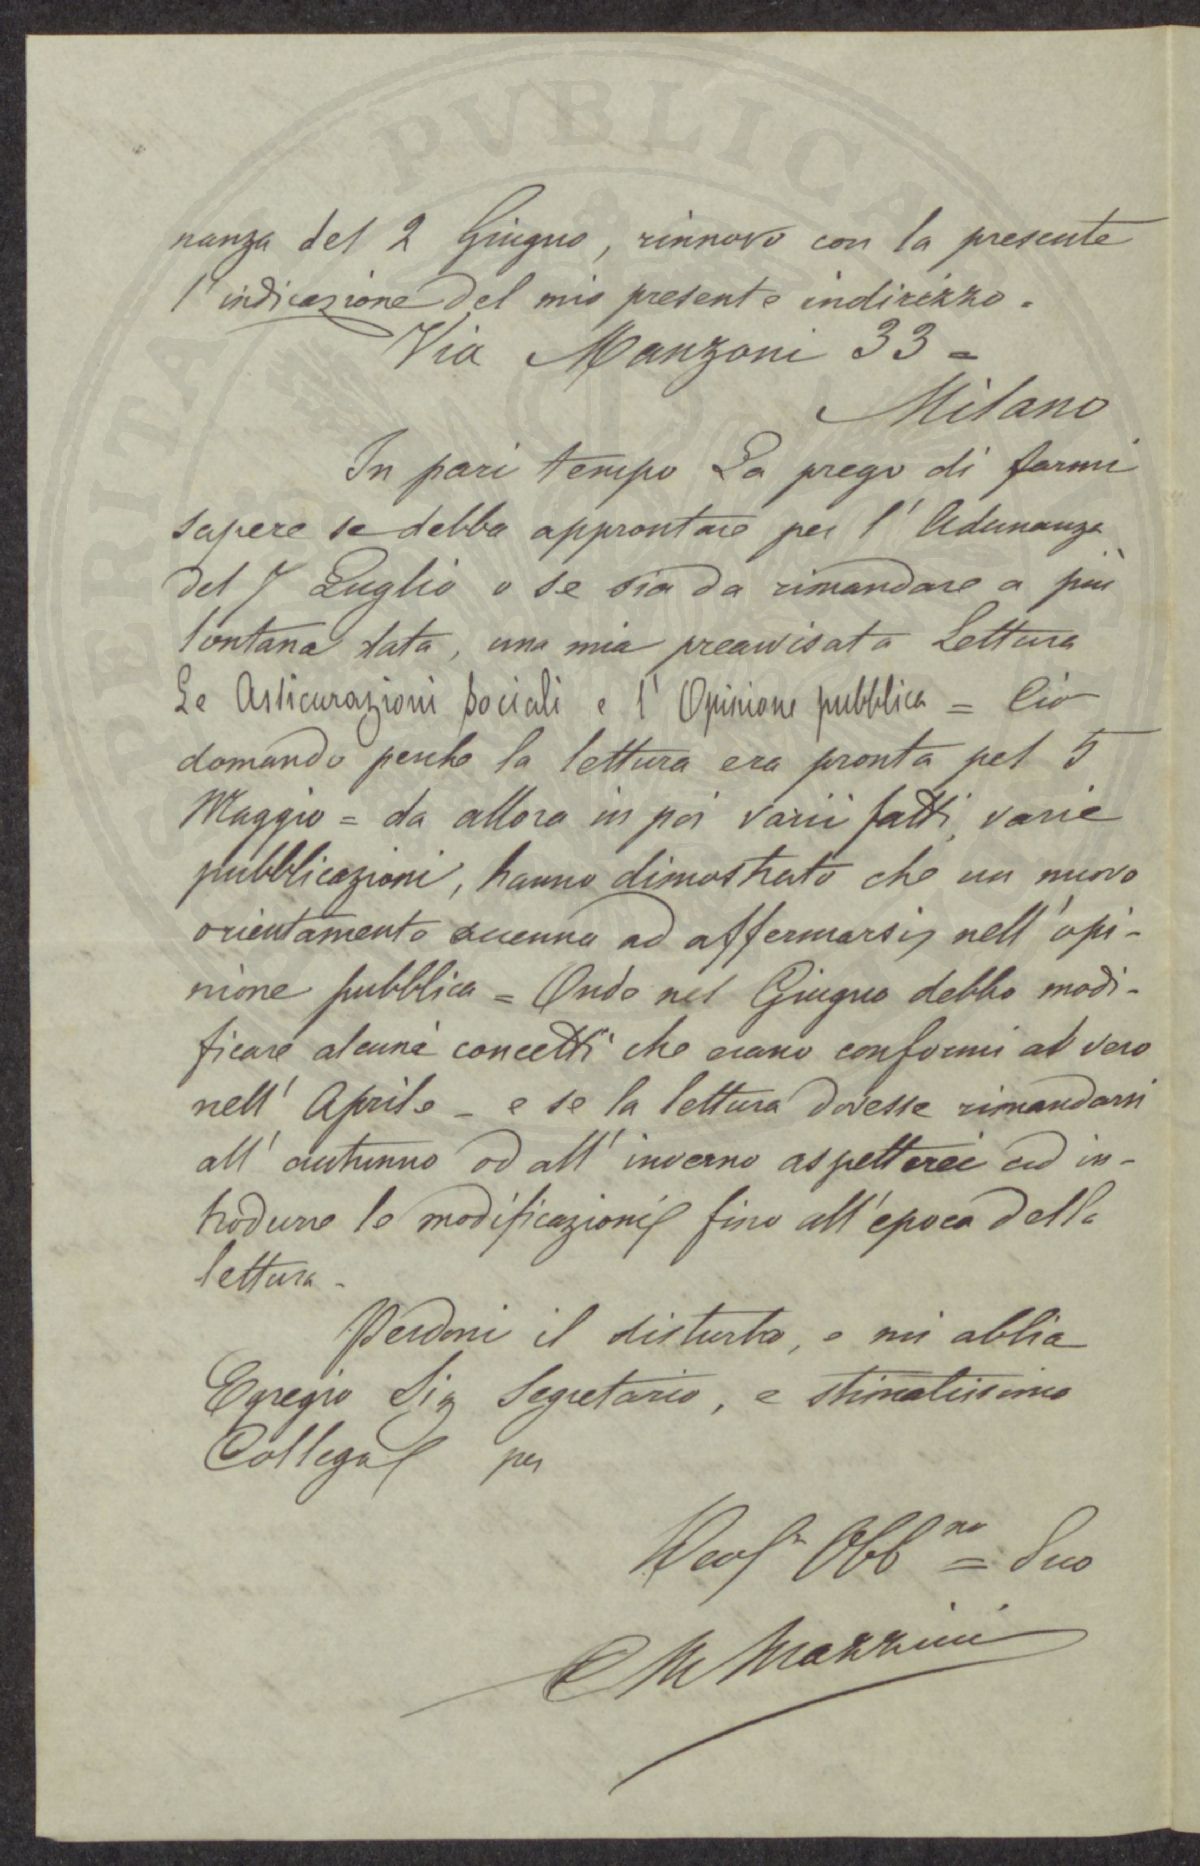 nanza del 2 Giugno, rinnovo con la presente
l'indicazione del mio presente indirizzo.
Via Manzoni 33 =
Milano
In pari tempo La prego di farmi
sapere se debba approntare per l'Adunanza
del 7 Luglio o se sia da rimandare a più
lontana data, una mia preavvisata Lettura
Le Assicurazioni Sociali e l'Opinione pubblica = Ciò
domando perche la lettura era pronta pel 5
Maggio = da allora in poi varii fatti, varie
pubblicazioni, hanno dimostrato che un nuovo
orientamento accenna ad affermarsi nell'opi-
nione pubblica = Onde nel Giugno debbo modi-
ficare alcuni concetti che erano conformi al vero
nell'Aprile - e se la lettura dovesse rimandarsi
all'autunno od all'inverno aspetterei ad in-
trodurre le modificazioni fino all'epoca della
lettura -
Perdoni il disturbo, e mi abbia
Egregio Sig Segretario, e stimatissimo
Collega per
Obb mo = Suo
C M Mazzini
PERITA PUBLICA